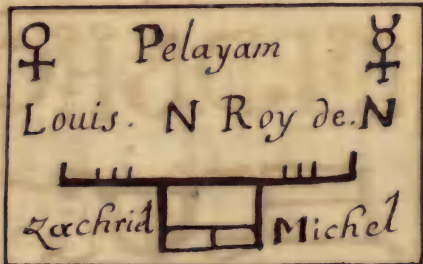 ♀ Pelayam ☿
Louis. N Roy de. N
Zachriel Michel